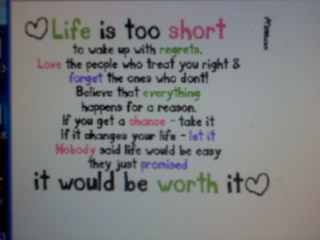 Life is too short
to wake up with regrets.
Love the people who treat you right &
forget the ones who dont!
Believe that everything
happens for a reason.
If you get a chance - take it
If it changes your life - let it
Nobody said life would be easy
they just promised
it would be worth it